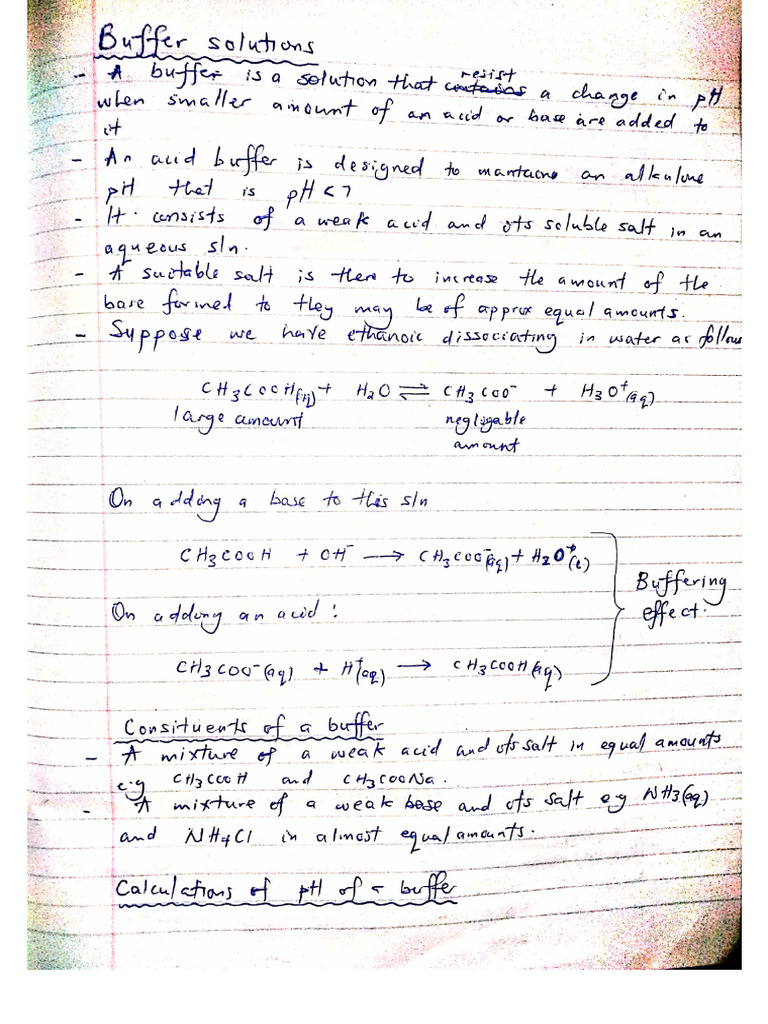 Buffer solutions
- A buffer is a solution that contains resist a change in pH
when smaller amount of an acid or base are added to
it
- An acid buffer is designed to mantaine an alkaline
pH that is pH < 7
- It consists of a weak acid and its soluble salt in an
aqueous sln.
- A suitable salt is there to increase the amount of the
base formed to they may be of approx equal amounts.
- Suppose we have ethanoic dissociating in water as follows
CH3COOH(aq) + H2O ⇌ CH3COO⁻ + H3O⁺(aq)
large amount negligable
amount
On adding a base to this sln
CH3COOH + OH⁻ → CH3COO⁻(aq) + H2O⁺(l)
Buffering
effect.
On adding an acid :
CH3COO⁻(aq) + H⁺(aq) → CH3COOH(aq)
Consituents of a buffer
- A mixture of a weak acid and its salt in equal amounts
e.g CH3COOH and CH3COONa.
- A mixture of a weak base and its salt eg NH3(aq)
and NH4Cl in almost equal amounts.
Calculations of pH of a buffer